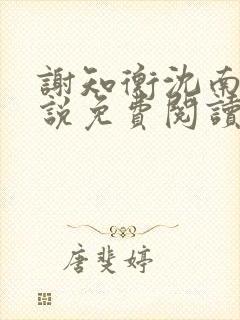 謝知衡沈南
說免費閱讀
唐斐婷